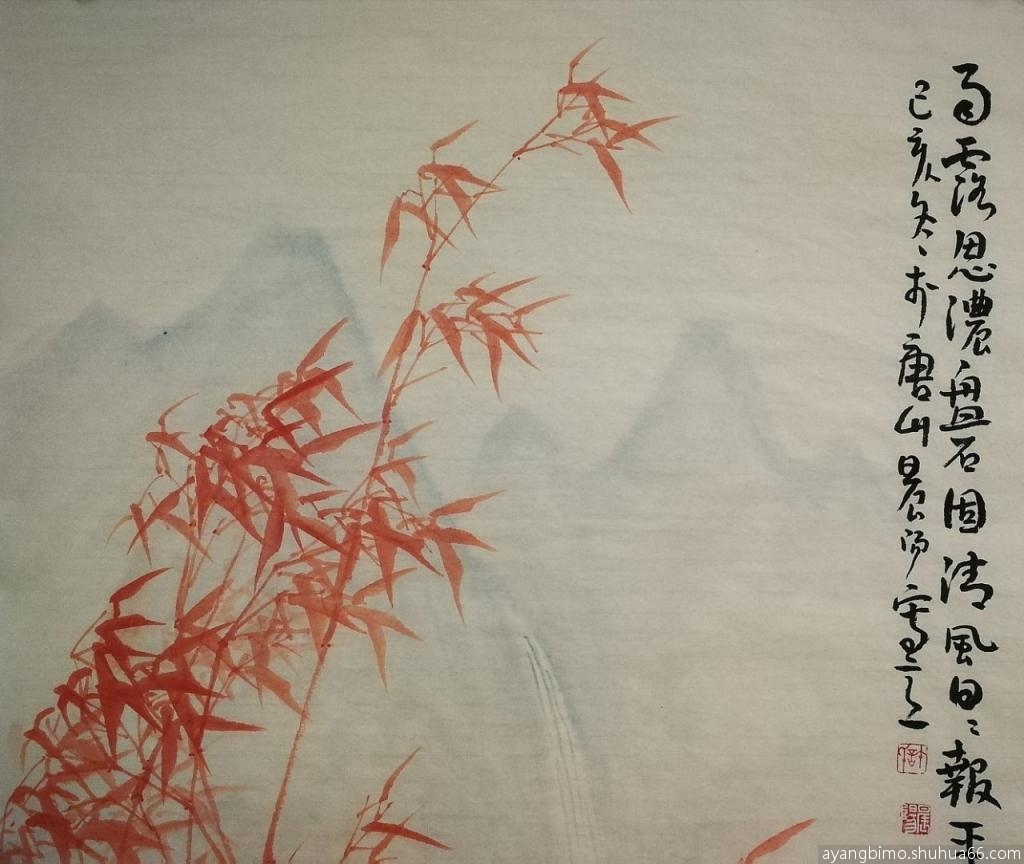 雨露恩濃盤石固清風日日報平
己亥冬於唐山晨陽寫之
ayangbimo.shuhua66.com